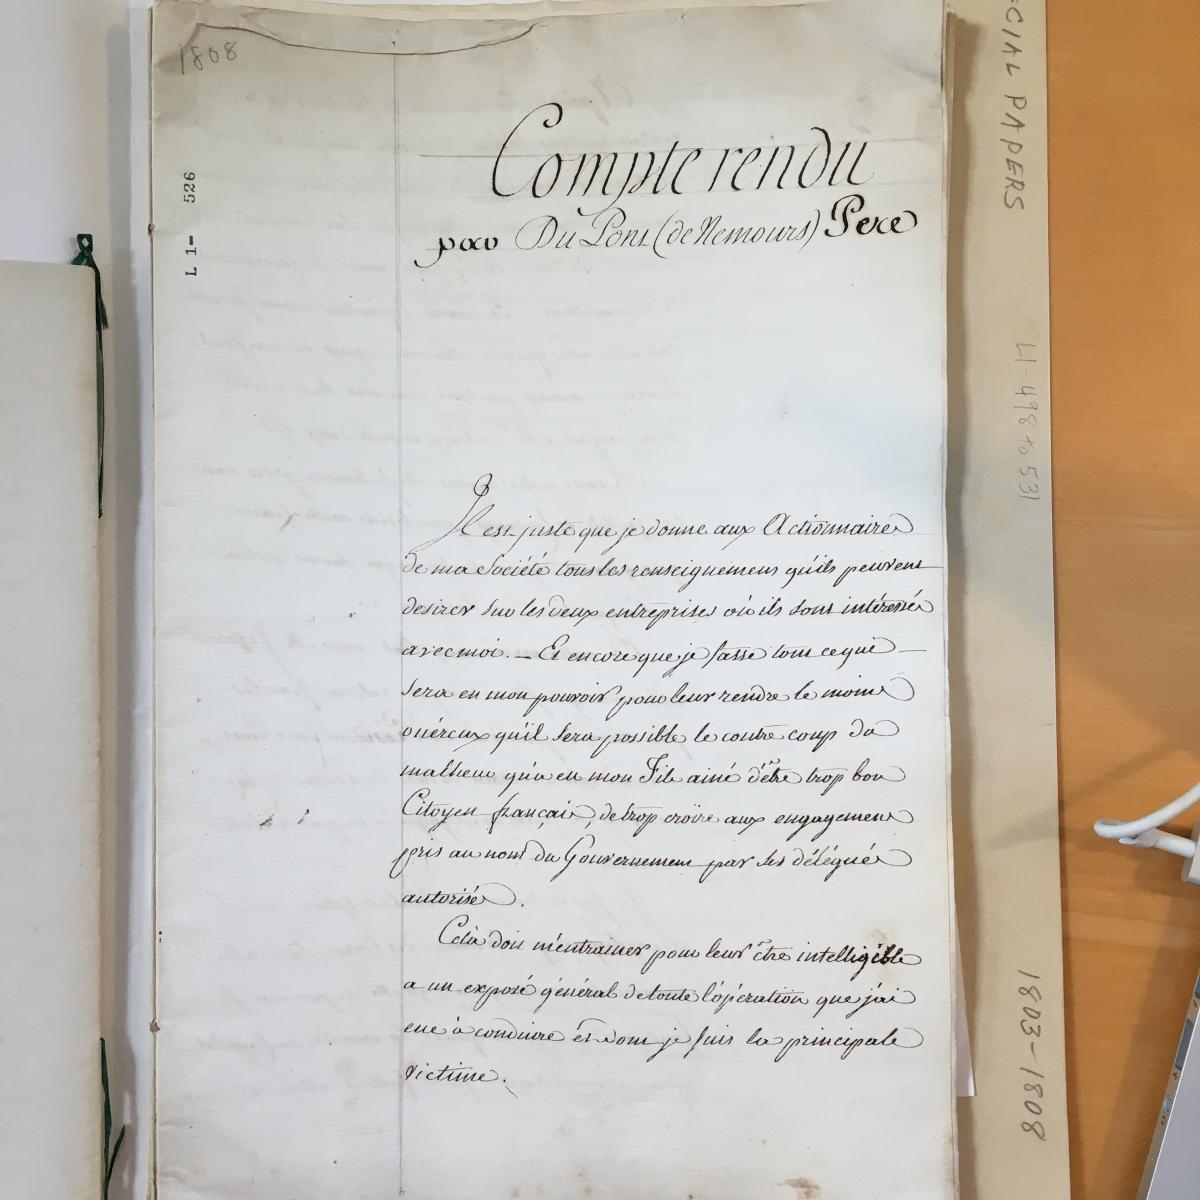 1808
L 1- 526
Compte rendu
par Du Pont (de Nemours) Pere
Il est juste que je donne aux Actionnaires
de ma Société tous les renseignemens qu'ils peuvent
desirer sur les deux entreprises où ils sont intéressés
avec moi. — Et encore que je fasse tout ce qui —
sera en mon pouvoir pour leur rendre le moins
onéreux qu'il sera possible le contre coup du
malheur qu'a eu mon Fils ainé d'être trop bon
Citoyen français, de trop croire aux engagemens
pris au nom du Gouvernement par ses délégués
autorisés.
Celà doit m'entrainer pour leur être intelligible
a un exposé général de toute l'opération que j'ai
eue à conduire et dont je suis la principale
victime.
CIAL PAPERS
L1-498 to 531
1803-1808